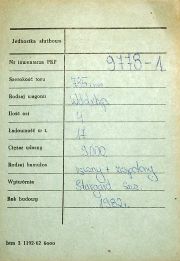 Jednostka służbowa
Nr inwentarza PKP 9778-1
Szerokość toru 785 mm
Rodzaj wagonu
Ilość osi 4
Ładowność w t. 17
Ciężar własny 9000
Rodzaj hamulca ręczny + zespolony
Wytwórnia Stargard Szcz.
Rok budowy 1982 r.